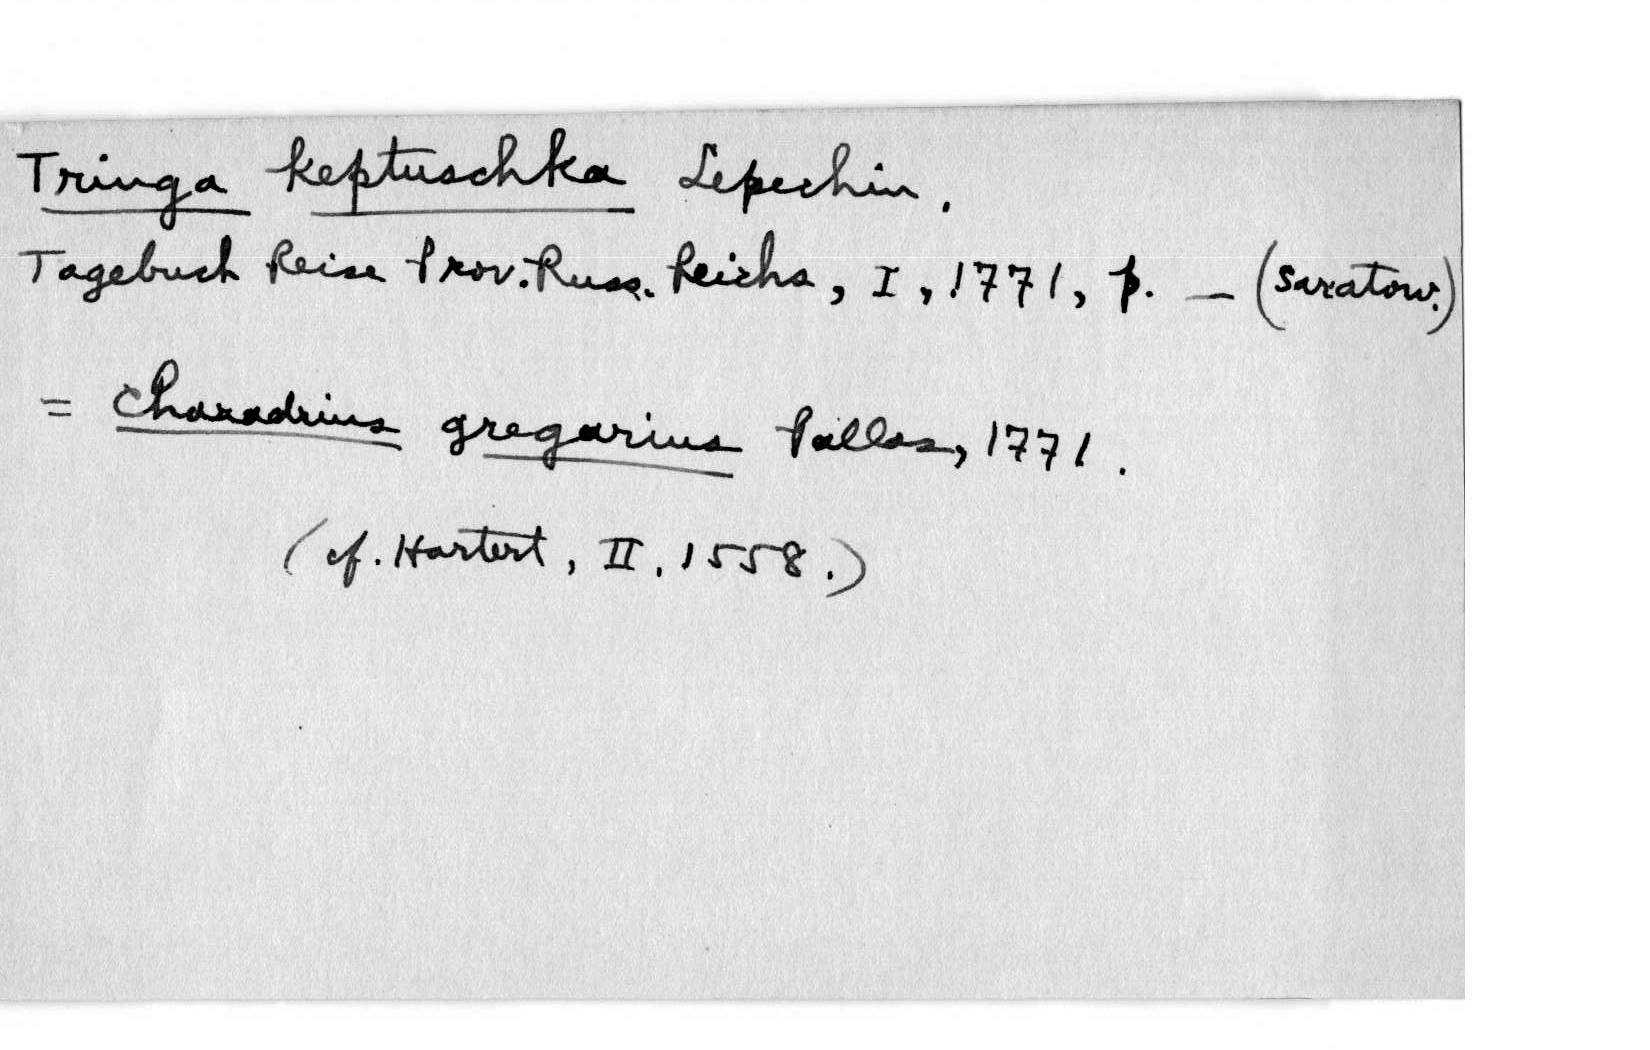 Tringa keptuschka Lepechin.
Tagebuch Reise Prov. Russ. Reichs, I, 1771, p. — (Saratow.)
= Charadrius gregarius Pallas, 1771.
(cf. Hartert, II, 1558.)